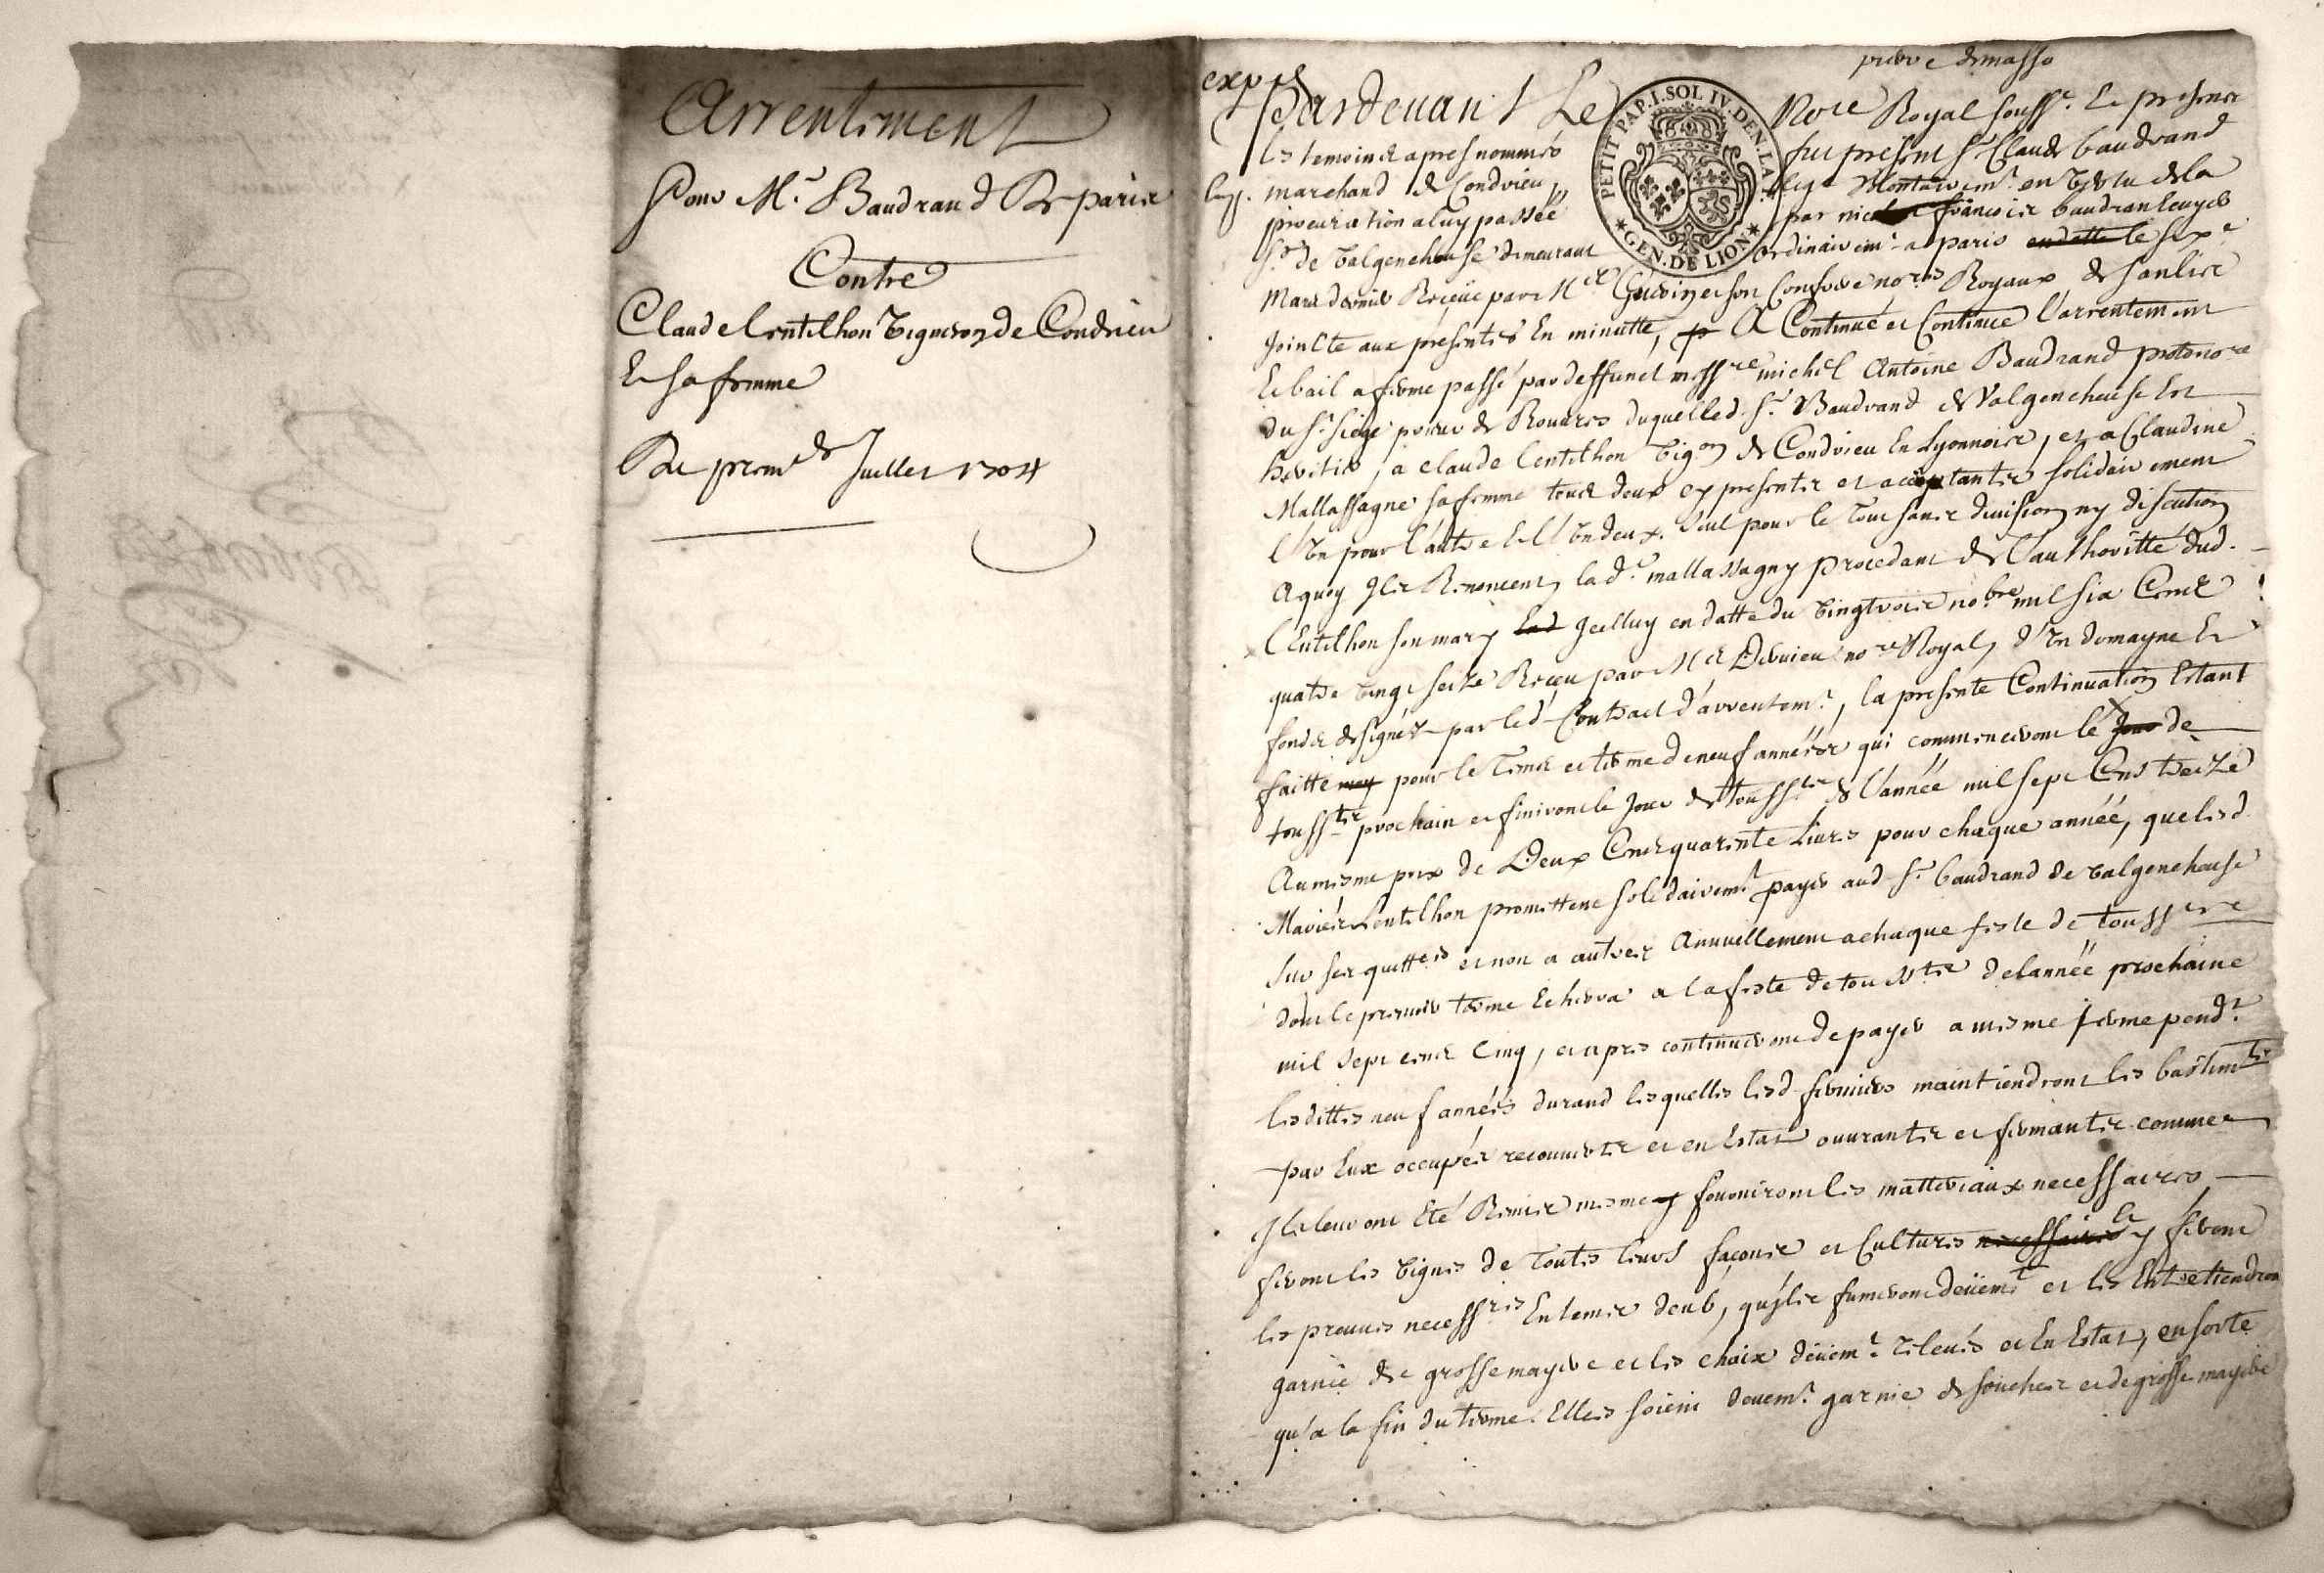 Arrentement
Pour Mr. Baudrand De paris
Contre
Claude Lentilhon vigneron de Condrieu
Et sa femme
Du premr. de Juillet 1704
exp
Pardevant Le Nore Royal soussé. En presence
PETIT PAP. I. SOL IV. DEN. LA F.
GEN. DE LION
des temoins apres nommés fut present sr. Claude baudrand
marchand de Condrieu en vertu de la
procuration a luy passée par francois baudran
sr. de valgeneheuse demeurant ordinairemt. a paris en datte le six
Mars dernier Receüe par Me. et son Confrere nores. Royaux de
Joincte aux presentes En minutte, A Continué et Continue L'arrentement
Et bail a ferme passé par deffunct messre michel Antoine Baudrand protonore
du st. siege prieur de Rouvres duquel led. sr. Baudrand de Valgeneheuse Est
heritier, a claude Lentilhon vigon de Condrieu En Lyonnois, et a Claudine
Mallassagne sa femme tous deux cy presents et acceptants solidairement
L'Un pour L'autre et L'Un deux seul pour le tout sans division ny discution
A quoy Ils Renoncent, lad. mallassagny procedant de L'authorité dud.
Lentilhon son mary en datte du vingtrois nobre mil six Cents
quatre vingt seize Receu par Me Drevieu nore Royal, d'Un domayne Et
fonds designés par led. Contract d'arrentemt., la presente Continuation Estant
faitte pour le Tems et terme de neuf années qui commenceront le Jour de
toussts prochain et finiront le Jour de toussts de L'année mil sept Cens treize
Au mesme prix de Deux Cents quarente Livres pour chaque année, que lesd.
Mariés Lentilhon promettent solidairemt. payer aud. sr. baudrand de valgeneheuse
sur ses quittes et non a autres Annuellement a chaque feste de toussts
dont le premier terme Echerra a la feste de toussts de lannée prochaine
mil sept cents cinq, et apres continueront de payer a mesme terme pendt.
lesdittes neuf années durand lesquelles lesd. fermiers maintiendront les bastimts
par Eux occupés recouverts et en Estat ouvrants et fermants comme
Ils leur ont Eté Remis mesme y fourniront les matteriaux necessaires
feront les vignes de Toutes leurs façons et Cultures necessaires et y feront
les preuves necessres En tems deub, qu'ils fumeront deüemt. et les Entretiendront
garnie de grosse mayere et les chaix deuemt. relevés et En Estat, en sorte
qu'a la fin du terme Elles soient deuemt. garnie de souches et de grosse mayere